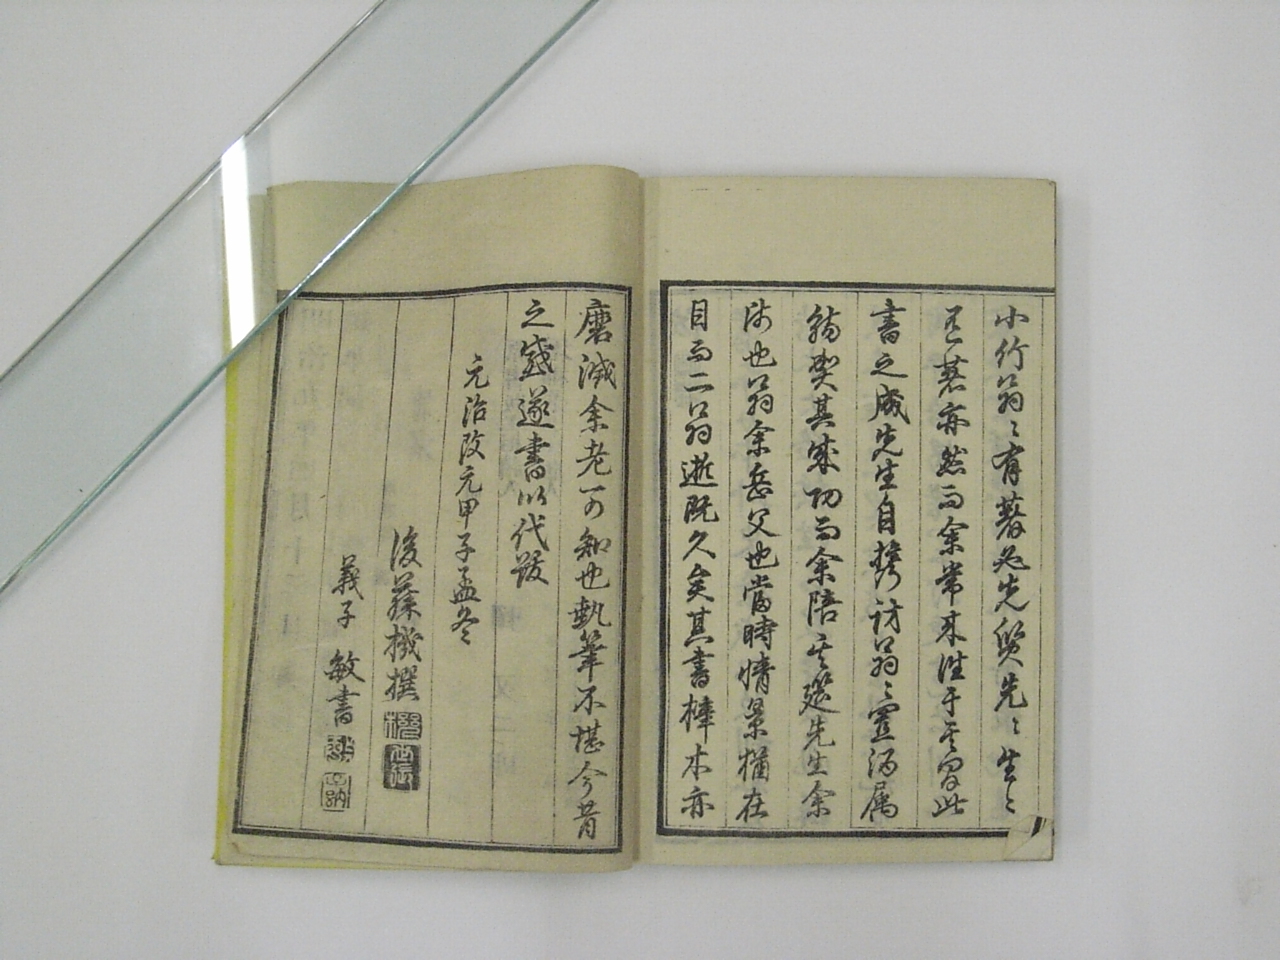 小竹翁〻有著必先質先〻生〻
著亦然而余常来往于其間此
書之成先生自携訪翁〻置酒属
觴賀其成功而余陪其筵先生余
師也翁余岳父也當時情景猶在
目而二翁逝既久矣其書樟木亦
磨滅余老可知也執筆不堪今昔
之感遂書以代跋
元治改元甲子孟冬
後藤機撰
義子 敏書